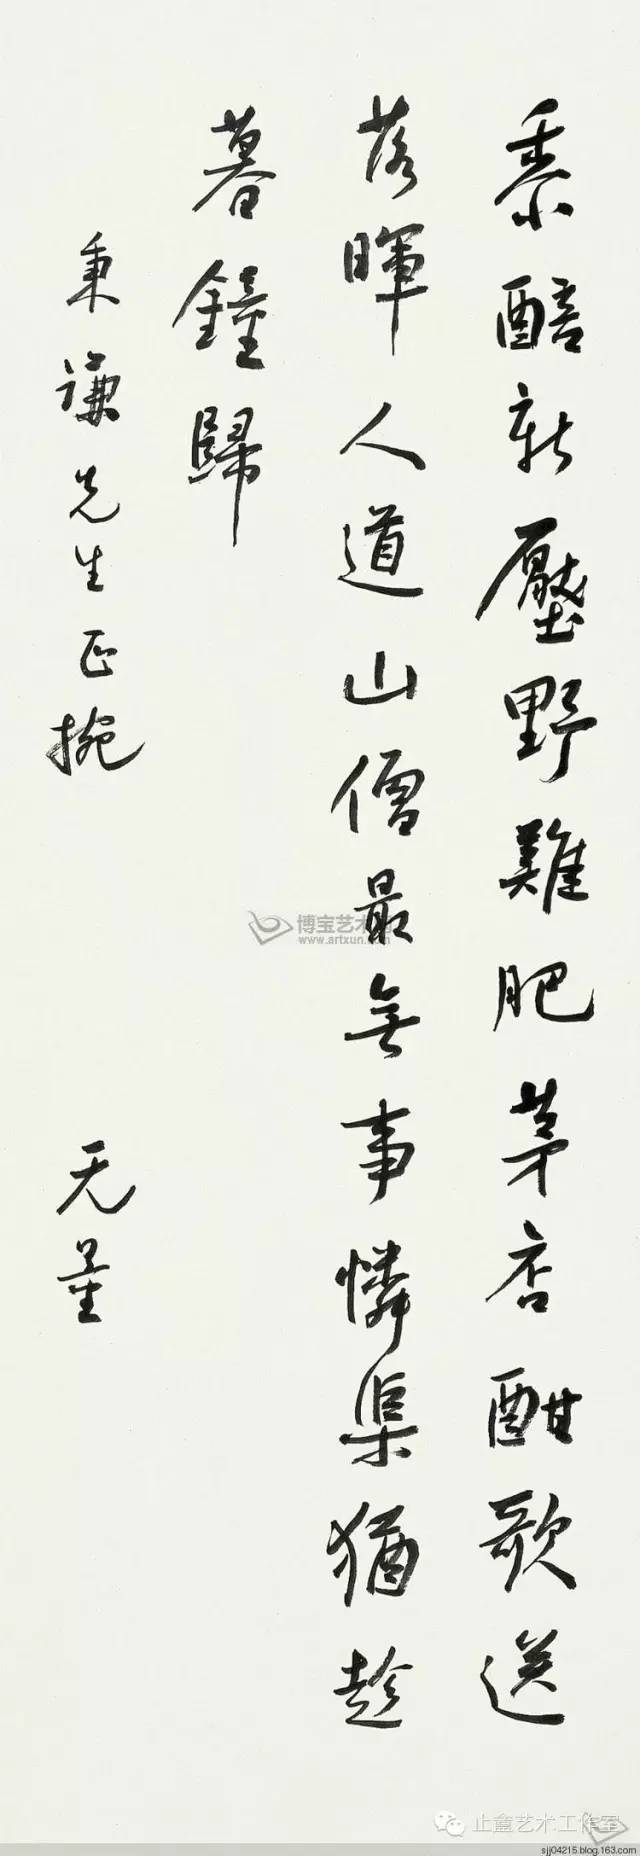 黍醅新壓野雞肥茅店酣歌送
落暉人道山僧最無事憐渠猶趁
暮鐘歸
秉謙先生正挽
无量
博宝艺术网
www.artxun.com
止盦艺术工作室
sjj04215.blog.163.com